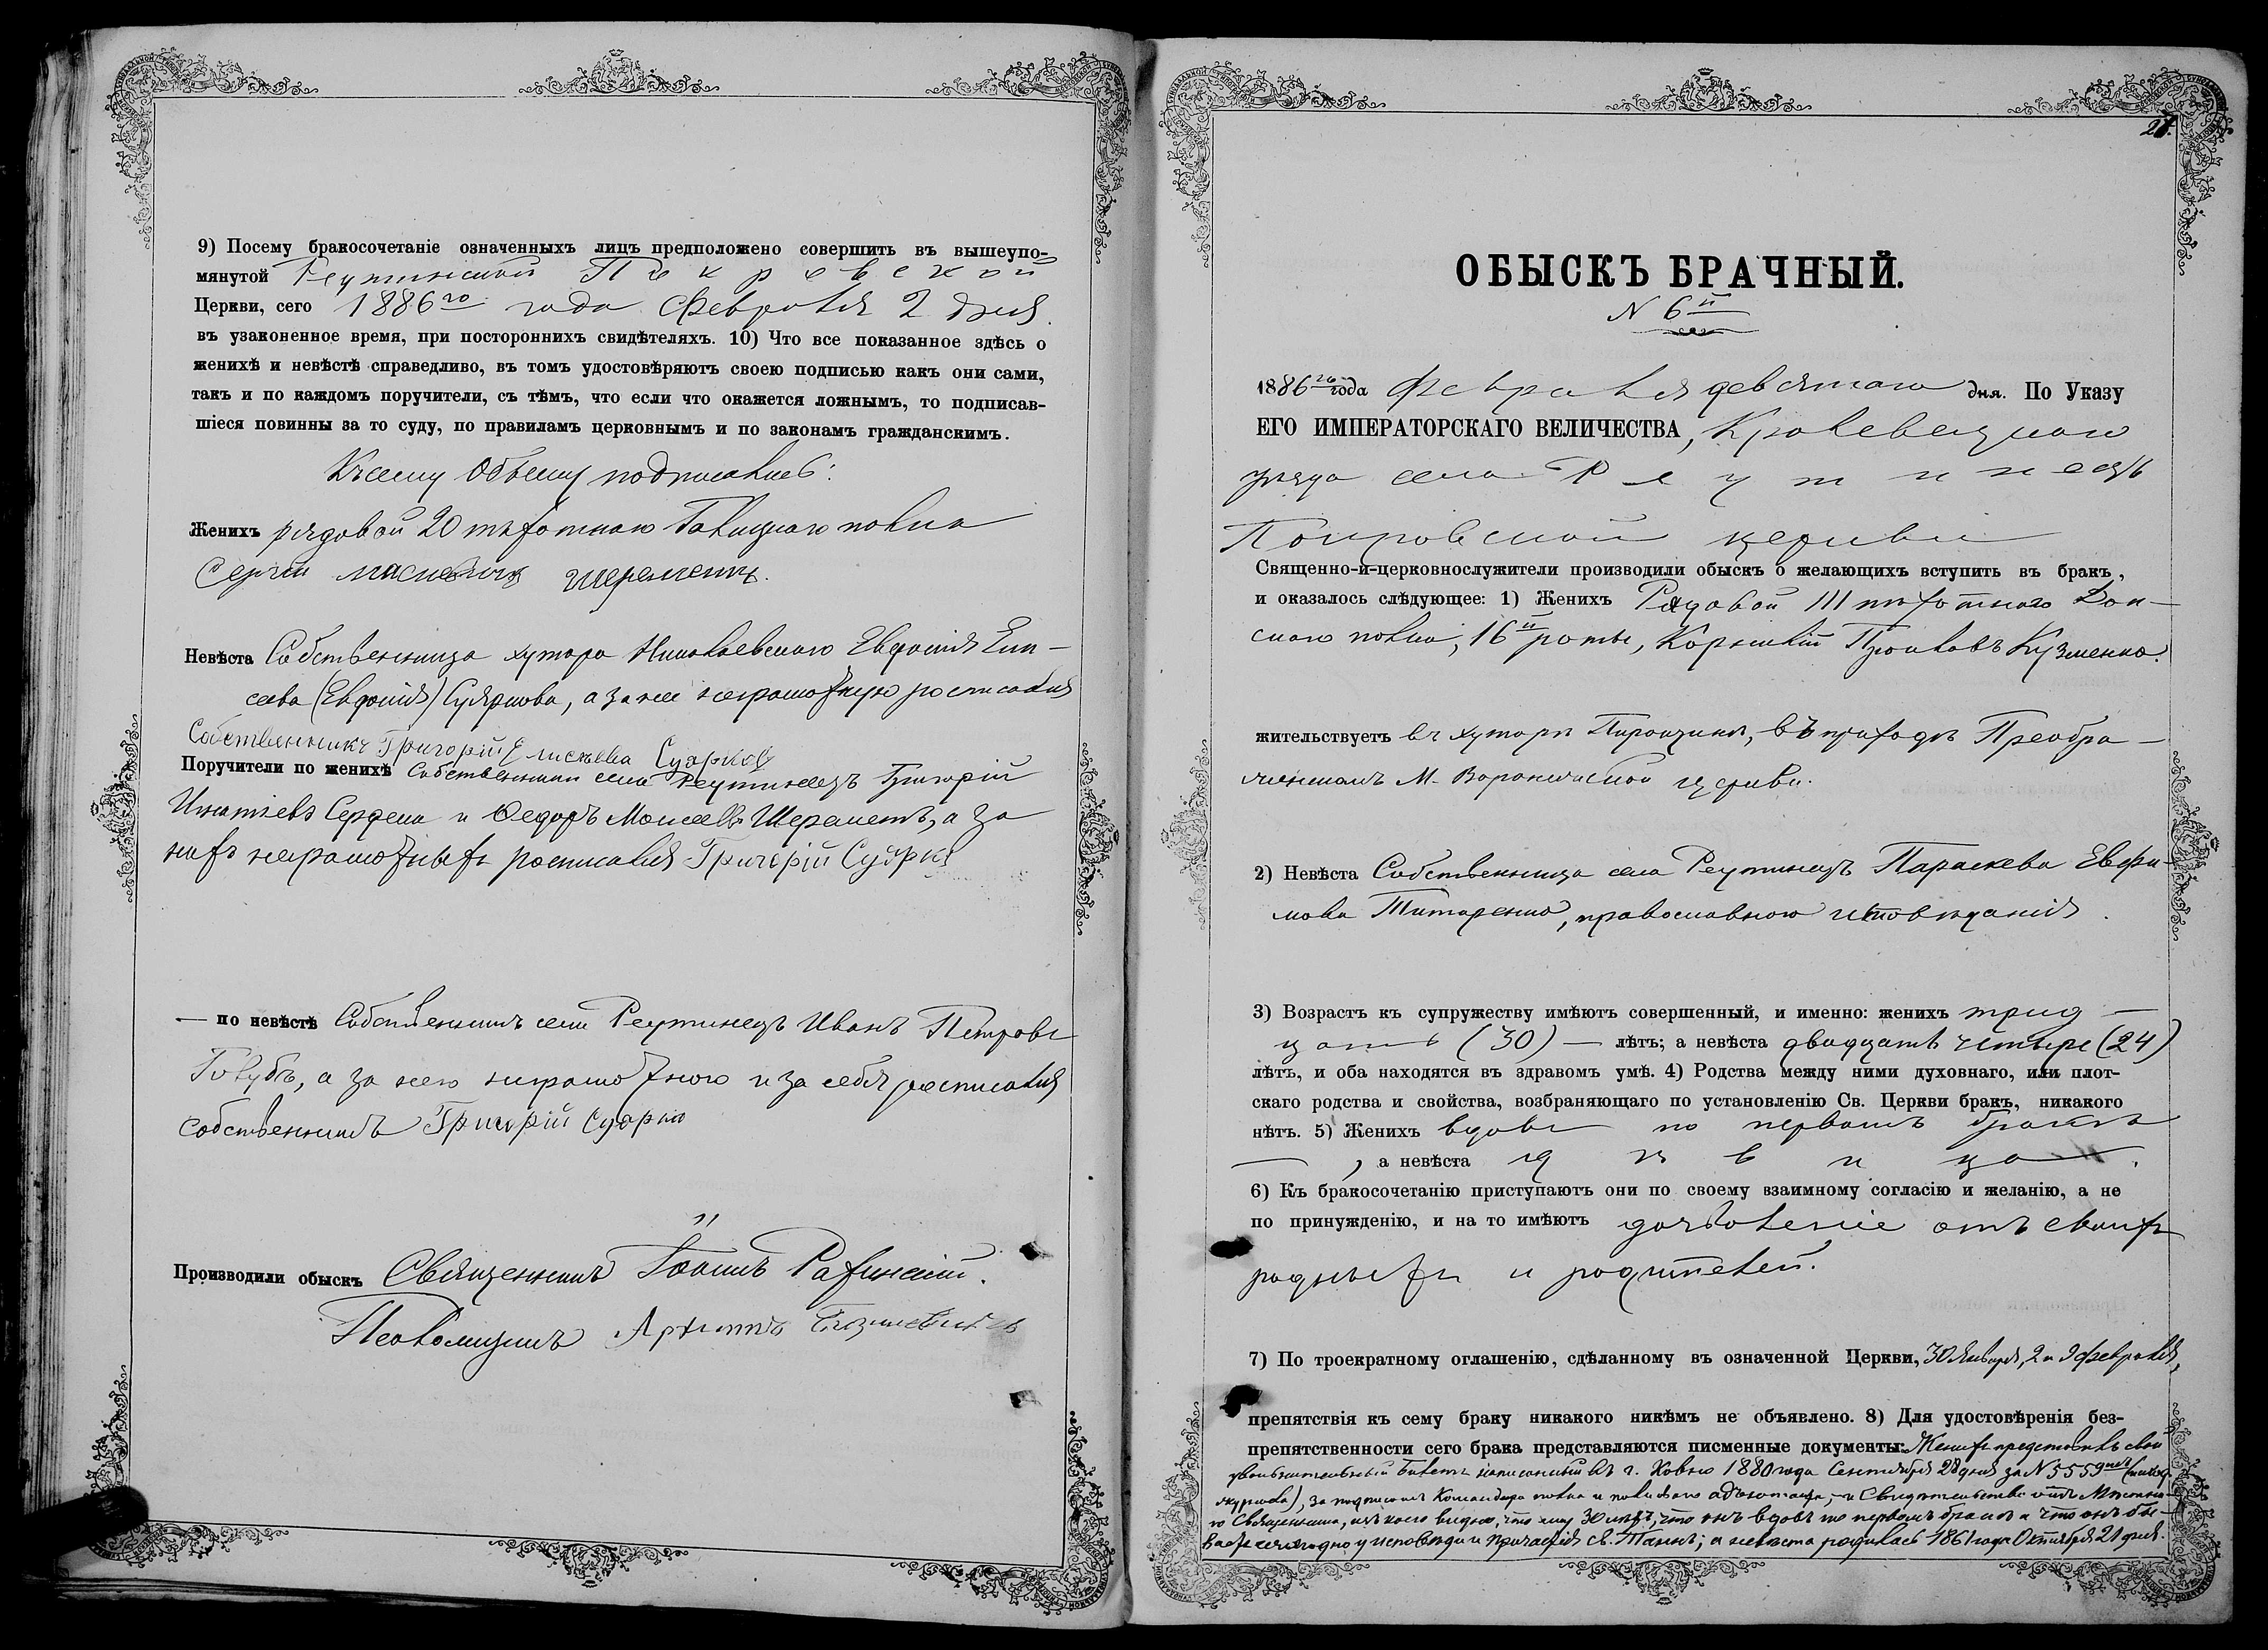 9) Посему бракосочетаніе означенныхъ лицъ предположено совершить въ вышеупо-
мянутой Реутинской Покровской
Церкви, сего 1886го года Февраля 2 дня.
въ узаконенное время, при постороннихъ свидѣтеляхъ. 10) Что все показанное здѣсь о
женихѣ и невѣстѣ справедливо, въ томъ удостовѣряютъ своею подписью какъ они сами,
такъ и по каждомъ поручители, съ тѣмъ, что если что окажется ложнымъ, то подписав-
шіеся повинны за то суду, по правиламъ церковнымъ и по законамъ гражданскимъ.
Къ сему Обыску подписались:
Женихъ рядовой 20 пѣхотнаго Галицкаго полка
Сергей Шереметъ.
Невѣста Собственница хутора Николаевскаго Евфимія Ели-
сеева (Евфимія) Суяркова, а за нее неграмотную росписался
Собственникъ Григорій Елисѣева
Поручители по женихѣ Собственники села Реутинецъ Григорій
Игнатіевъ Сердюк и Ѳедоръ Моисеевъ Шереметъ, а за
нихъ неграмотныхъ росписался Григорій Суярко
— по невѣстѣ Собственникъ села Реутинецъ Иванъ Петровъ
Голубъ, а за него неграмотного и за себя росписался
собственникъ Григорій Суярко
Производили обыскъ Священникъ Іоаннъ
Псаломщикъ Архиппъ
27.
ОБЫСКЪ БРАЧНЫЙ.
N 6й
1886го года Февраля девятаго дня. По Указу
ЕГО ИМПЕРАТОРСКАГО ВЕЛИЧЕСТВА, Кролевецкаго
уѣзда села Реутинецъ
Покровской церкви
Священно-и-церковнослужители производили обыскъ о желающихъ вступить въ бракъ,
и оказалось слѣдующее: 1) Женихъ Рядовой 111 пѣхотнаго Дон-
скаго полка, 16й роты, Корнилій Кузменко.
жительствуетъ въ хуторѣ въ приходѣ Преобра-
женскомъ М. Воронежской церкви.
2) Невѣста Собственница села Реутинецъ Параскева Евфи-
мова Титаренко, православного исповѣданія.
3) Возрастъ къ супружеству имѣютъ совершенный, и именно: женихъ трид-
цать (30) — лѣтъ; а невѣста двадцать четыре (24)
лѣтъ, и оба находятся въ здравомъ умѣ. 4) Родства между ними духовнаго, или плот-
скаго родства и свойства, возбраняющаго по установленію Св. Церкви бракъ, никакого
нѣтъ. 5) Женихъ вдовъ по первомъ бракѣ
—, а невѣста дѣвица.
6) Къ бракосочетанію приступаютъ они по своему взаимному согласію и желанію, а не
по принужденію, и на то имѣютъ дозволеніе отъ своихъ
родныхъ и родителей.
7) По троекратному оглашенію, сдѣланному въ означенной Церкви, 30 Января, 2 и 9 февраля,
препятствія къ сему браку никакого никѣмъ не объявлено. 8) Для удостовѣренія без-
препятственности сего брака представляются писменные документы: Женихъ представилъ свой
увольнительный билетъ написанный въ г. Ковно 1880 года Сентября 28 дня за N 5559
за подписомъ Командира полка и полковаго адъютанта, и Свидѣтельство отъ Мѣстна-
го Священника, изъ коего видно, что ему 30 лѣтъ, что онъ вдовъ по первомъ бракѣ и что онъ бы-
валъ ежегодно у исповѣди и причастія Св. Таинъ; а невѣста родилась 1861 года Октября 21 дня.